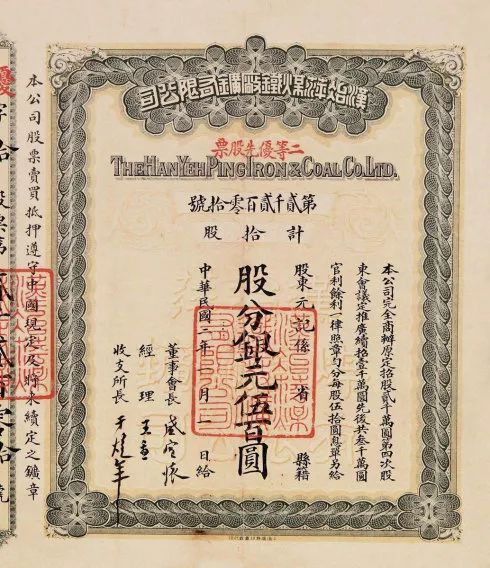 漢冶萍煤鐵廠礦有限公司
二等優先股票
THE HAN YEH PING IRON & COAL CO. LTD.
第貳千貳百零拾號
計拾股
本公司完全商辦原定招股貳千萬圓第四次股
東會議定推廣續招壹千萬圓先後共叁千萬圓
官利餘利一律照章勻分每股伍拾圓息單另給
股東元記係 省 縣籍
股分銀元伍百圓
中華民國二年一月一日給
董事會長 盛宣懷
經理
收支所長 于焌年
本公司股票賣買抵押遵守中國現定及將來續定之鑛章